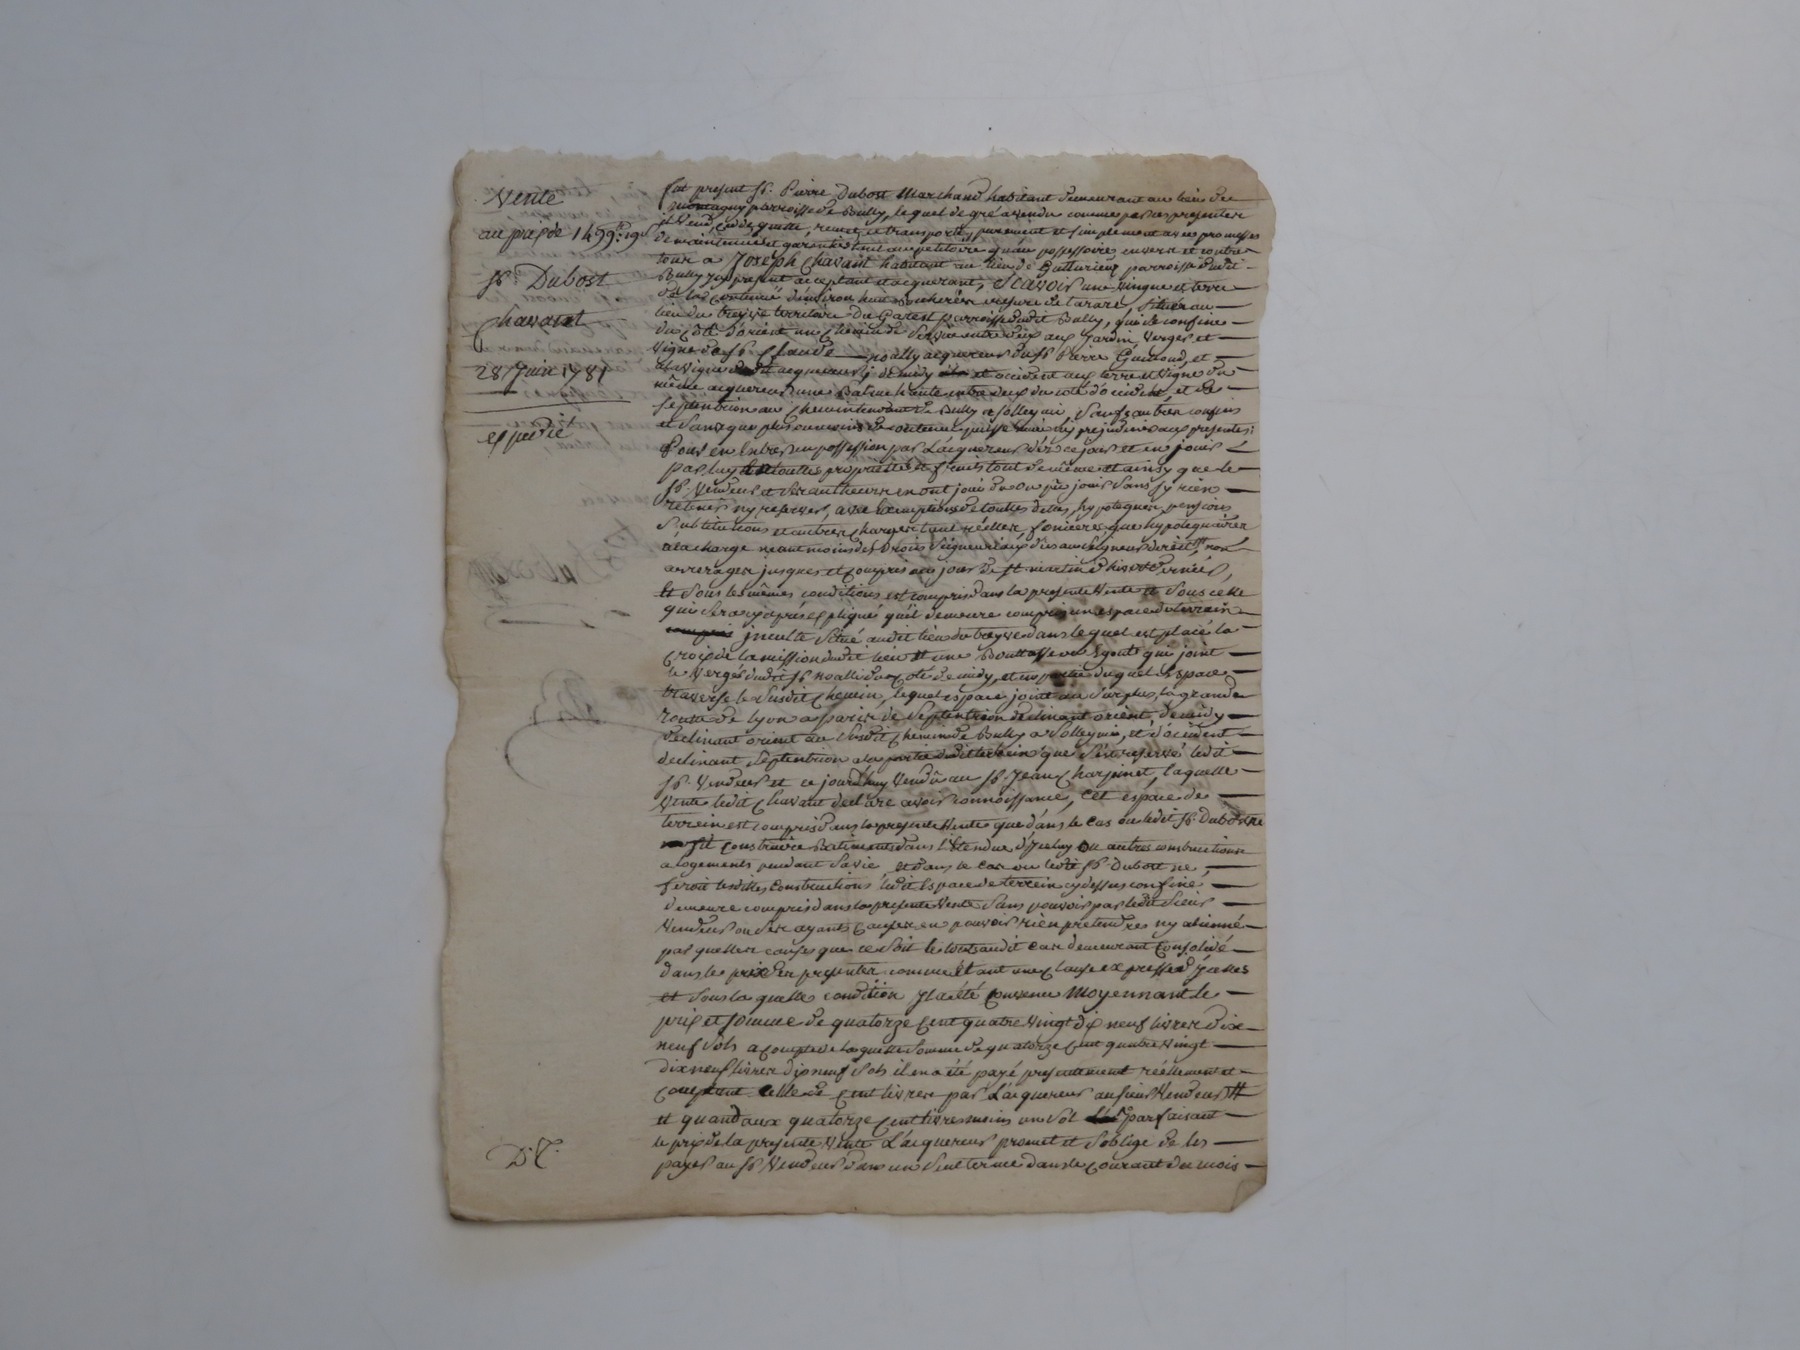 Vente
au prix de 1499.# 19 s
Sr. Dubost
Chavant
28 Juin 1781
expedié
Fut present Sr. Pierre Dubost Marchand habitant demeurant au lieu de
montagny parroisse de Bully, lequel de gré a vendu comme par ces presentes
il vend, cede, quitte, remet et transporte, purement et simplement avec promesses
de maintenüe et garentie tant au petitoire qu'au possessoire envers et contre
tous a Joseph Chavant habitant au lieu de parroisse dudit
Bully icy present acceptant et acquerant, Scavoir une vingne et terre
de la contenüe d'environ huit mesure de tarare, situés au
lieu du territoire du parroisse dudit Bully, qui se confine
du coté d'orient un chemin de entre deux aux Jardin, verger et
vigne de Sr. Claude noally acquereur du Sr. Pierre Guimoud, et
a la vigne dudit acquereur, de midy et occident aux terre et vigne du
même acquereur une entre deux du coté d'occident, et de
septentrion au chemin tendant de Bully a Solleymi, sauf autres confins
et sans que plus ou moins de contenüe puisse nuire ny prejudicier aux presentes;
Pour en entrer en possession par L'acquereur dès ce jour et en jouir
par luy en toutte proprieté et fruits tout de même et ainsy que le
Sr. vendeur et ses autheurs en ont joui dû ou pû jouir sans sy rien
retenir ny reserver, avec exemption de touttes dettes, hypoteques, pensions
Substitutions et autres charges tant réelles, foncieres que hypotequaires
a la charge neantmoins des Droits Seigneuriaux dües au Seigneur direct, non
arreragés jusques et compris au jour de St. martin d'hiver dernier,
Et Sous les mêmes conditions est compris dans la presente vente et Sous celle
qui sera cy après expliqué qu'il demeure compris un espace de terrein
inculte Situé audit lieu du dans lequel est placé la
Croix de la mission dudit lieu et une Bouttasse ou Egout qui joint
le Verger dudit Sr. noalli du Coté de midy, et en partie duquel Espace
traverse le Susdit Chemin, lequel espace joint au Surplus la grande
route de lyon a paris de Septentrion declinant orient, de midy
declinant orient au Susdit chemin de Bully a Solleymi, et d'occident
declinant Septentrion a la partie dudit terrein que s'est reservé ledit
Sr. vendeur et ce jourdhuy vendû au Sr. Jean Charpinet, laquelle
vente ledit Chavant declare avoir connoissance, cet espace de
terrein est compris dans la presente vente que dans le cas ou ledit Sr. Dubost ne
fit construire Batiments dans l'étendue d'iceluy ou autres constructions
a logements pendant Sa vie, et dans le cas ou ledit Sr. Dubost ne
feroit lesdittes constructions ledit Espace de terrein cy dessus confiné
demeure compris dans la presente vente Sans pouvoir par ledit Sieur
vendeur ou ses ayants causes en pouvoir rien pretendre ny
par quelles causes que ce soit le tout audit cas demeurant consolidé
dans le prix des presentes comme étant une clause expresse
et Sous la quelle condition il a été convenu Moyennant le
prix et somme de quatorze cent quatre vingt dix neuf livres dix
neuf Sols a compte de laquelle Somme de quatorze cent quatre vingt
dix neuf livres dix neuf Sols il en a été payé presentement réellement et
comptant celle de cent livres par L'acquereur au sieur vendeur
et quand aux quatorze cent livres moins un Sol parfaisant
le prix de la presente vente L'acquereur promet et S'oblige de les
payer au Sr. vendeur dans un Seul terme dans le Courant du mois
D. C.